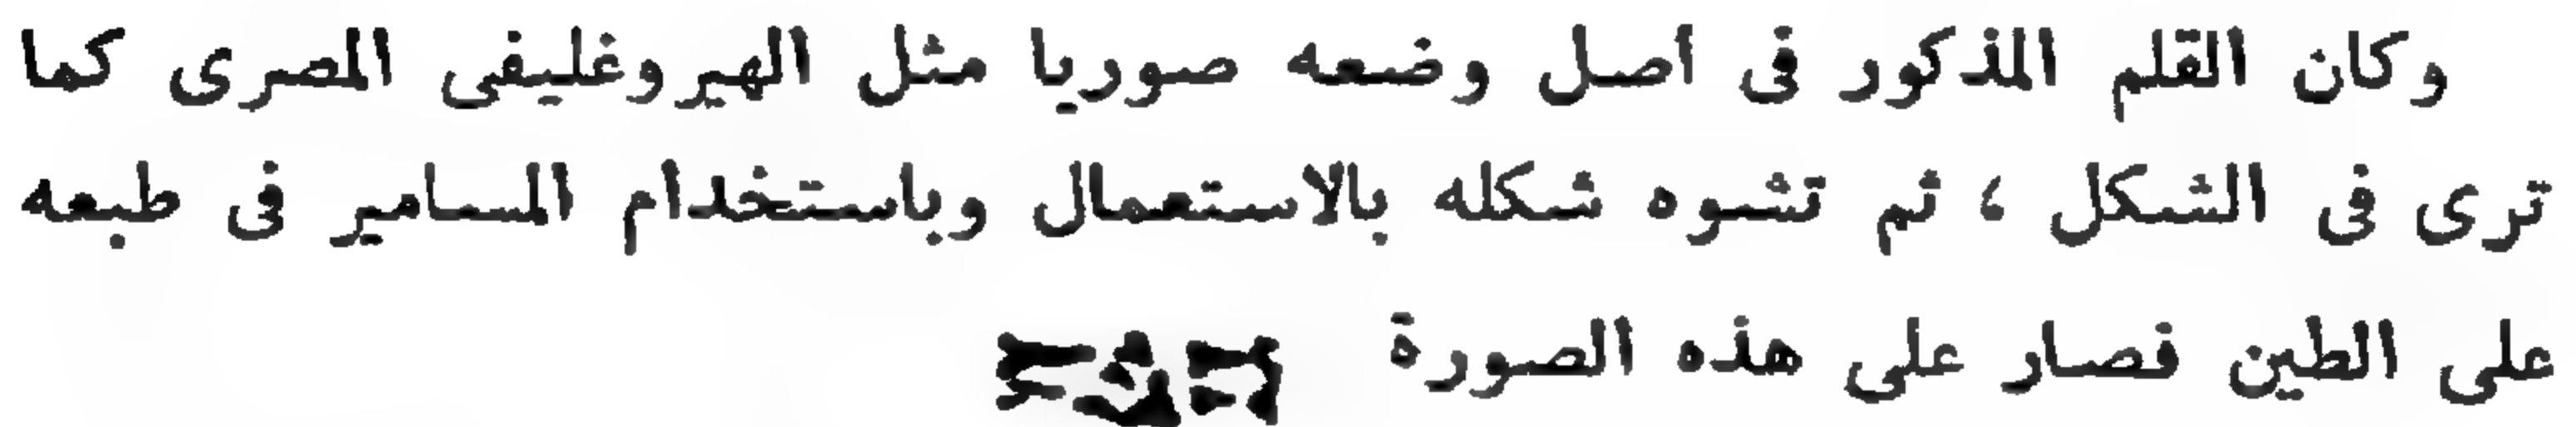 وكان القلم المذكور فى أصل وضعه صوريا مثل الهيروغليفى المصرى كما
ترى فى الشكل ، ثم تشوه شكله بالاستعمال وباستخدام المسامير فى طبعه
على الطين فصار على هذه الصورة